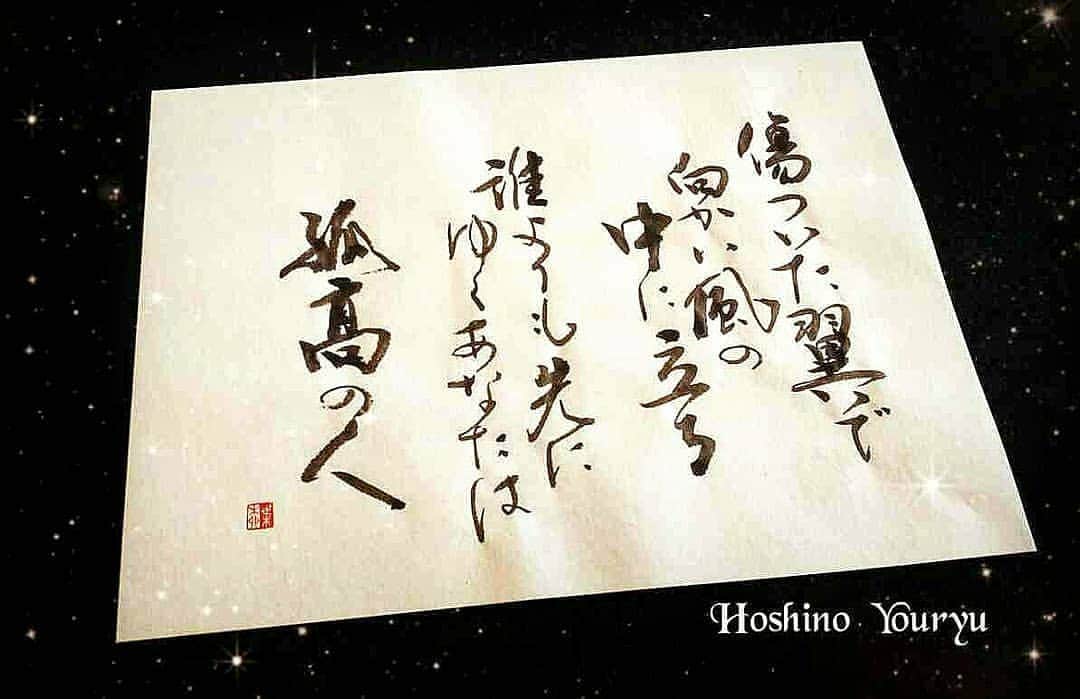 傷ついた翼で
向かい風の
中に立ち
誰よりも先に
ゆくあなたは
孤高の人
Hoshino Youryu